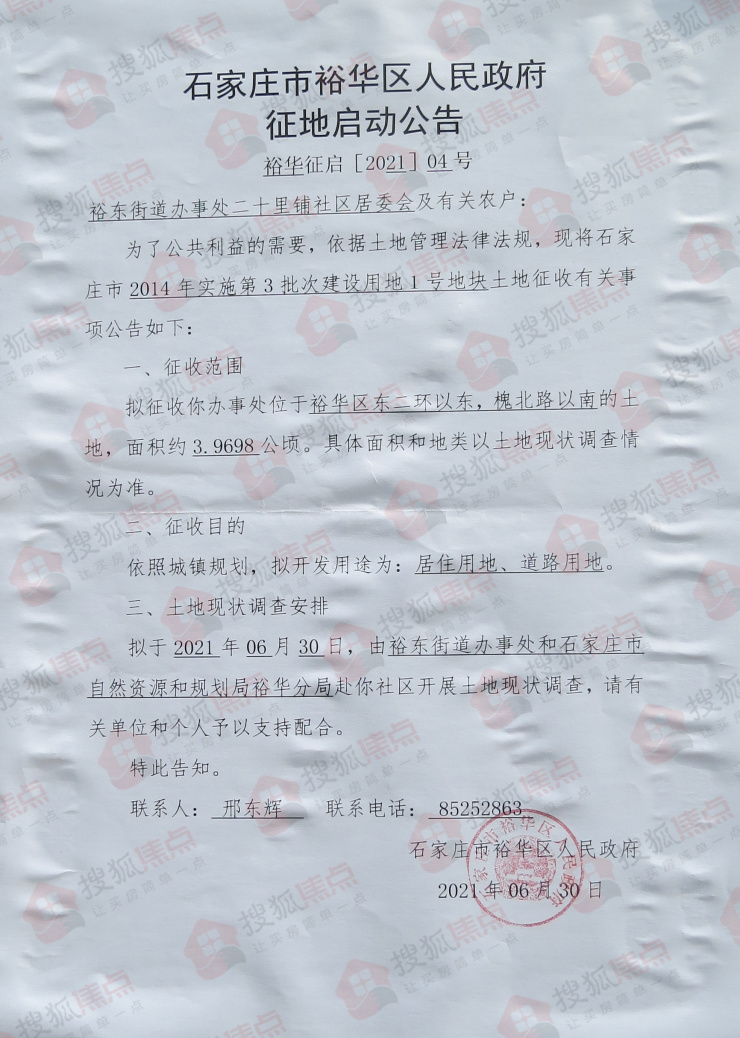 石家庄市裕华区人民政府
征地启动公告
裕华征启［2021］04号
裕东街道办事处二十里铺社区居委会及有关农户：
为了公共利益的需要，依据土地管理法律法规，现将石家
庄市2014年实施第3批次建设用地1号地块土地征收有关事
项公告如下：
一、征收范围
拟征收你办事处位于裕华区东二环以东，槐北路以南的土
地，面积约3.9698公顷。具体面积和地类以土地现状调查情
况为准。
二、征收目的
依照城镇规划，拟开发用途为：居住用地、道路用地。
三、土地现状调查安排
拟于2021年06月30日，由裕东街道办事处和石家庄市
自然资源和规划局裕华分局赴你社区开展土地现状调查，请有
关单位和个人予以支持配合。
特此告知。
联系人：邢东辉 联系电话：85252863
石家庄市裕华区人民政府
2021年06月30日
石家庄市裕华区人民政府
搜狐焦点
让买房简单一点